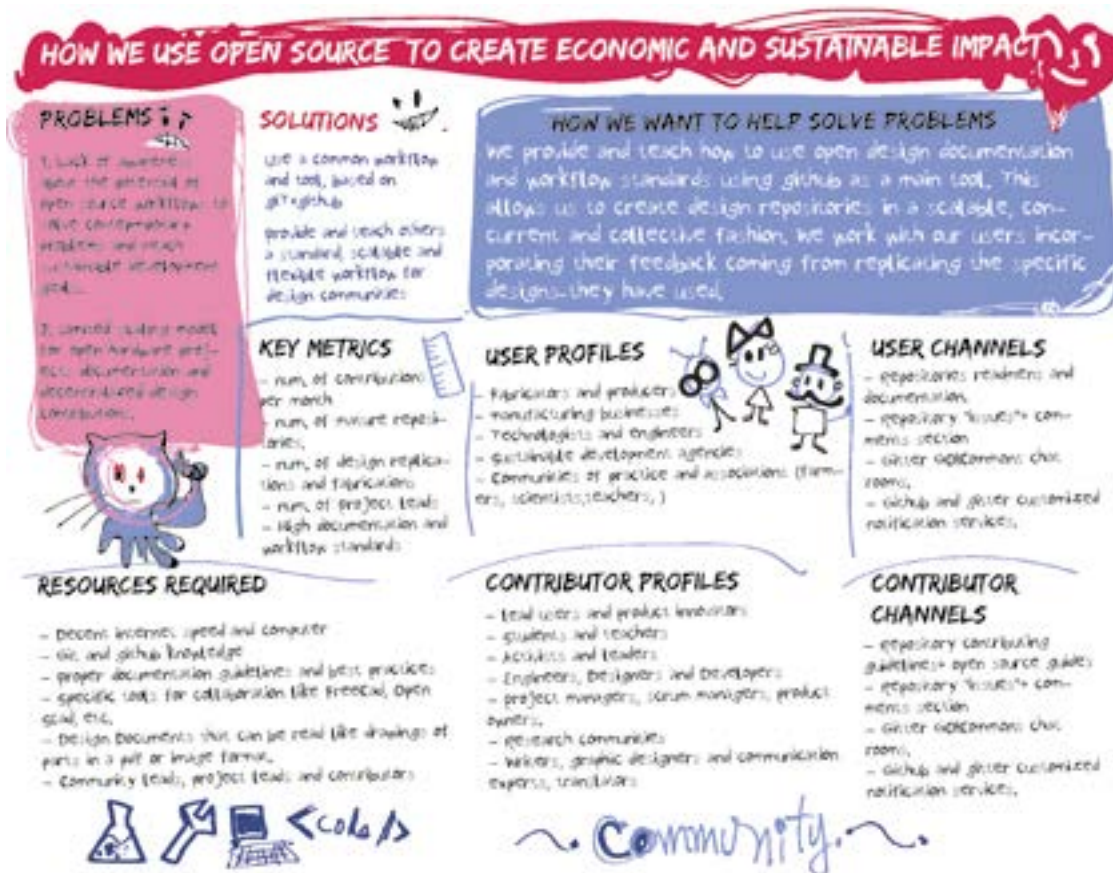 HOW WE USE OPEN SOURCE TO CREATE ECONOMIC AND SUSTAINABLE IMPACT
PROBLEMS
1. Lack of awareness
about the potential of
open source workflows to
solve contemporary
problems and reach
sustainable development
goals.
2. Limited scaling model
for open hardware proj-
ects documentation and
decentralized design
contributions.
SOLUTIONS
use a common workflow
and tool, based on
git+github
provide and teach others
a standard, scalable and
flexible workflow for
design communities
HOW WE WANT TO HELP SOLVE PROBLEMS
We provide and teach how to use open design documentation
and workflow standards using github as a main tool. This
allows us to create design repositories in a scalable, con-
current and collective fashion. We work with our users incor-
porating their feedback coming from replicating the specific
designs they have used.
KEY METRICS
- num. of contributions
per month
- num. of mature reposi-
tories.
- num. of design replica-
tions and fabrications
- num. of project leads
- High documentation and
workflow standards
USER PROFILES
- Fabricators and producers
- manufacturing businesses
- Technologists and engineers
- Sustainable development agencies
- Communities of practice and associations (farm-
ers, scientists, teachers, )
USER CHANNELS
- Repositories readmes and
documentation.
- Repository "issues"+ com-
ments section
- Gitter chat
rooms.
- Github and gitter customized
notification services.
RESOURCES REQUIRED
- Decent internet speed and computer
- Git and github knowledge
- proper documentation guidelines and best practices
- specific tools for collaboration like FreeCad, Open
Scad, etc.
- Design Documents that can be read like drawings of
parts in a pdf or image format.
- Community leads, project leads and contributors
CONTRIBUTOR PROFILES
- Lead users and product innovators
- Students and teachers
- Activists and leaders
- Engineers, Designers and Developers
- project managers, scrum managers, product
owners.
- Research communities
- Writers, graphic designers and communication
experts, translators
CONTRIBUTOR
CHANNELS
- Repository contributing
guidelines+ open source guides
- Repository "issues"+ com-
ments section
- Gitter chat
rooms.
- Github and gitter customized
notification services.
<code/>
Community.